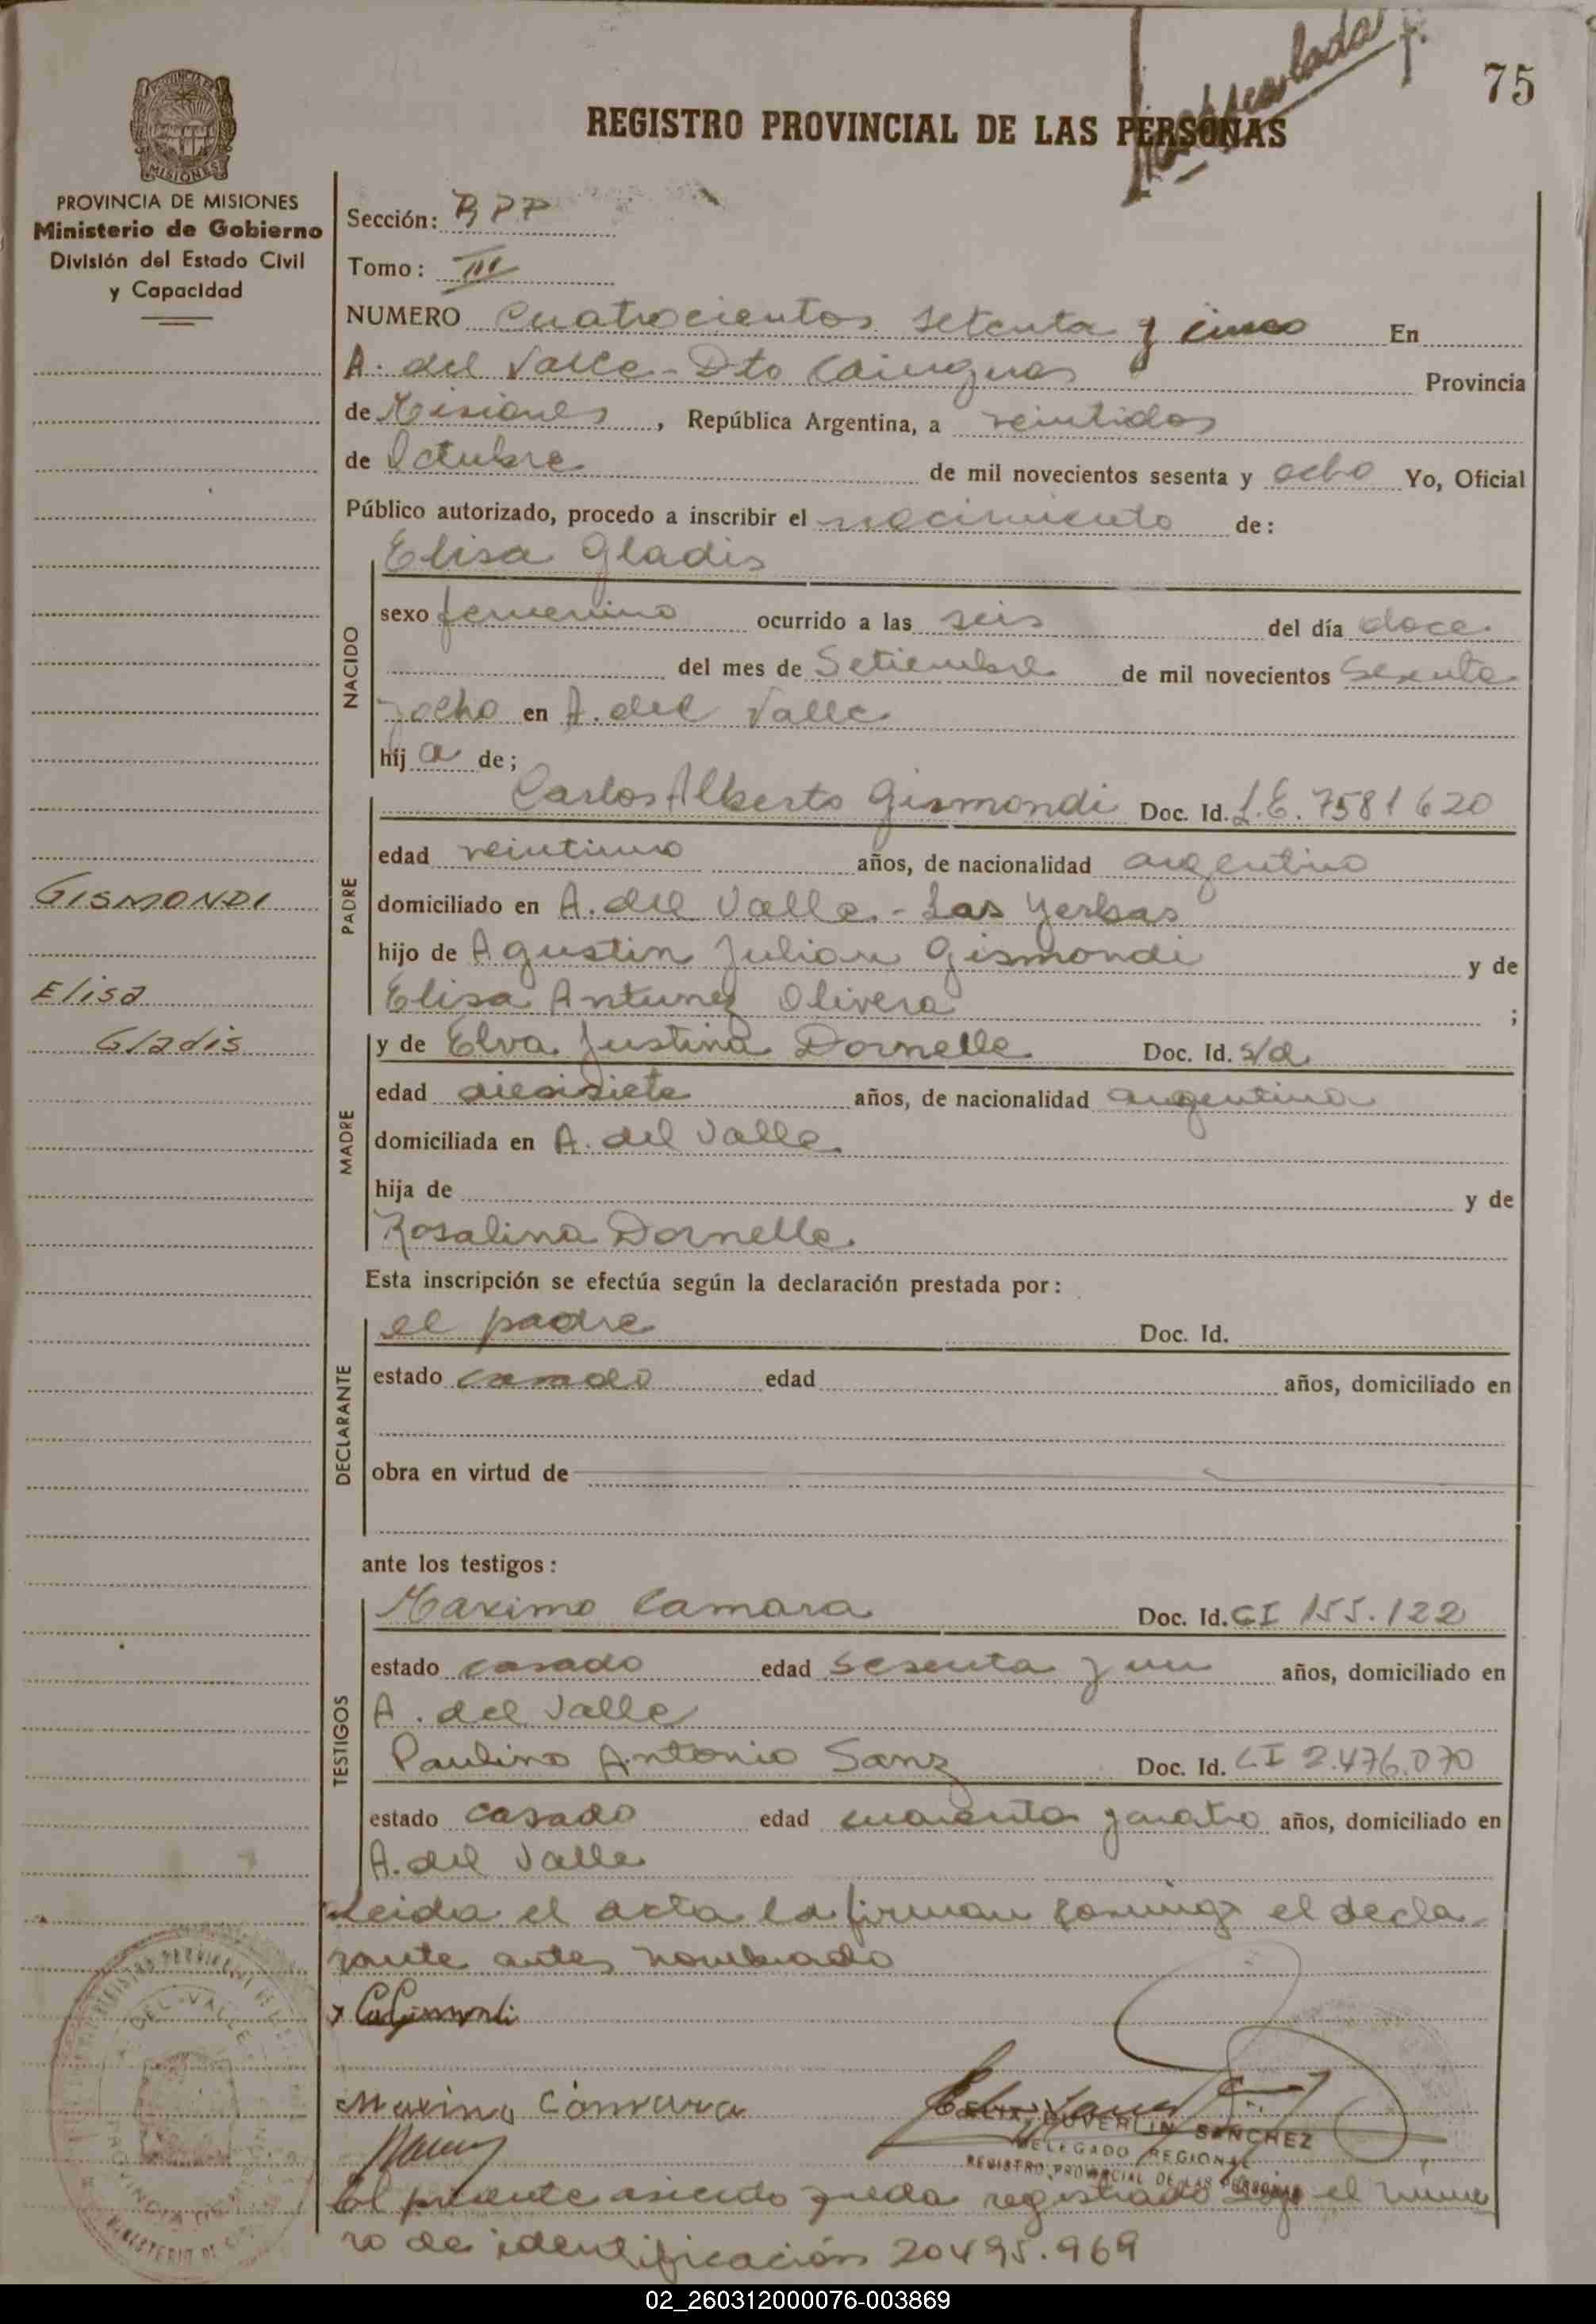 75
REGISTRO PROVINCIAL DE LAS PERSONAS
PROVINCIA DE MISIONES
Ministerio de Gobierno
División del Estado Civil
y Capacidad
Sección: RPP
Tomo: III
NUMERO Cuatrocientos setenta y cinco En
A. del Valle - Dto Cainguas Provincia
de Misiones, República Argentina, a veintidos
de Octubre de mil novecientos sesenta y ocho Yo, Oficial
Público autorizado, procedo a inscribir el nacimiento de:
NACIDO
Elisa Gladis
sexo femenino ocurrido a las seis del día doce
del mes de Setiembre de mil novecientos sesenta
y ocho en A. del Valle
hij a de;
GISMONDI
Elisa
Gladis
PADRE
Carlos Alberto Gismondi Doc. Id. L.E. 7581620
edad veintiuno años, de nacionalidad argentino
domiciliado en A. del Valle - Las Yerbas
hijo de Agustin Julian Gismondi y de
Elisa Antunez Olivera ;
MADRE
y de Elva Justina Dornelle Doc. Id. s/d
edad diesisiete años, de nacionalidad argentina
domiciliada en A. del Valle
hija de y de
Rosalina Dornelle
Esta inscripción se efectúa según la declaración prestada por:
DECLARANTE
el padre Doc. Id.
estado casado edad años, domiciliado en
obra en virtud de
ante los testigos:
TESTIGOS
Maximo Camara Doc. Id. CI 155.122
estado casado edad sesenta y un años, domiciliado en
A. del Valle
Paulino Antonio Sanz Doc. Id. CI 2.476.070
estado casado edad cuarenta y cuatro años, domiciliado en
A. del Valle
Leida el acta la firman conmigo el decla
rante antes nombrado
Maximo Camara
SANCHEZ
DELEGADO REGIONAL
REGISTRO PROVINCIAL DE LAS PERSONAS
El presente asiento queda registrado bajo el núme
ro de identificación 20495.969
02_260312000076-003869